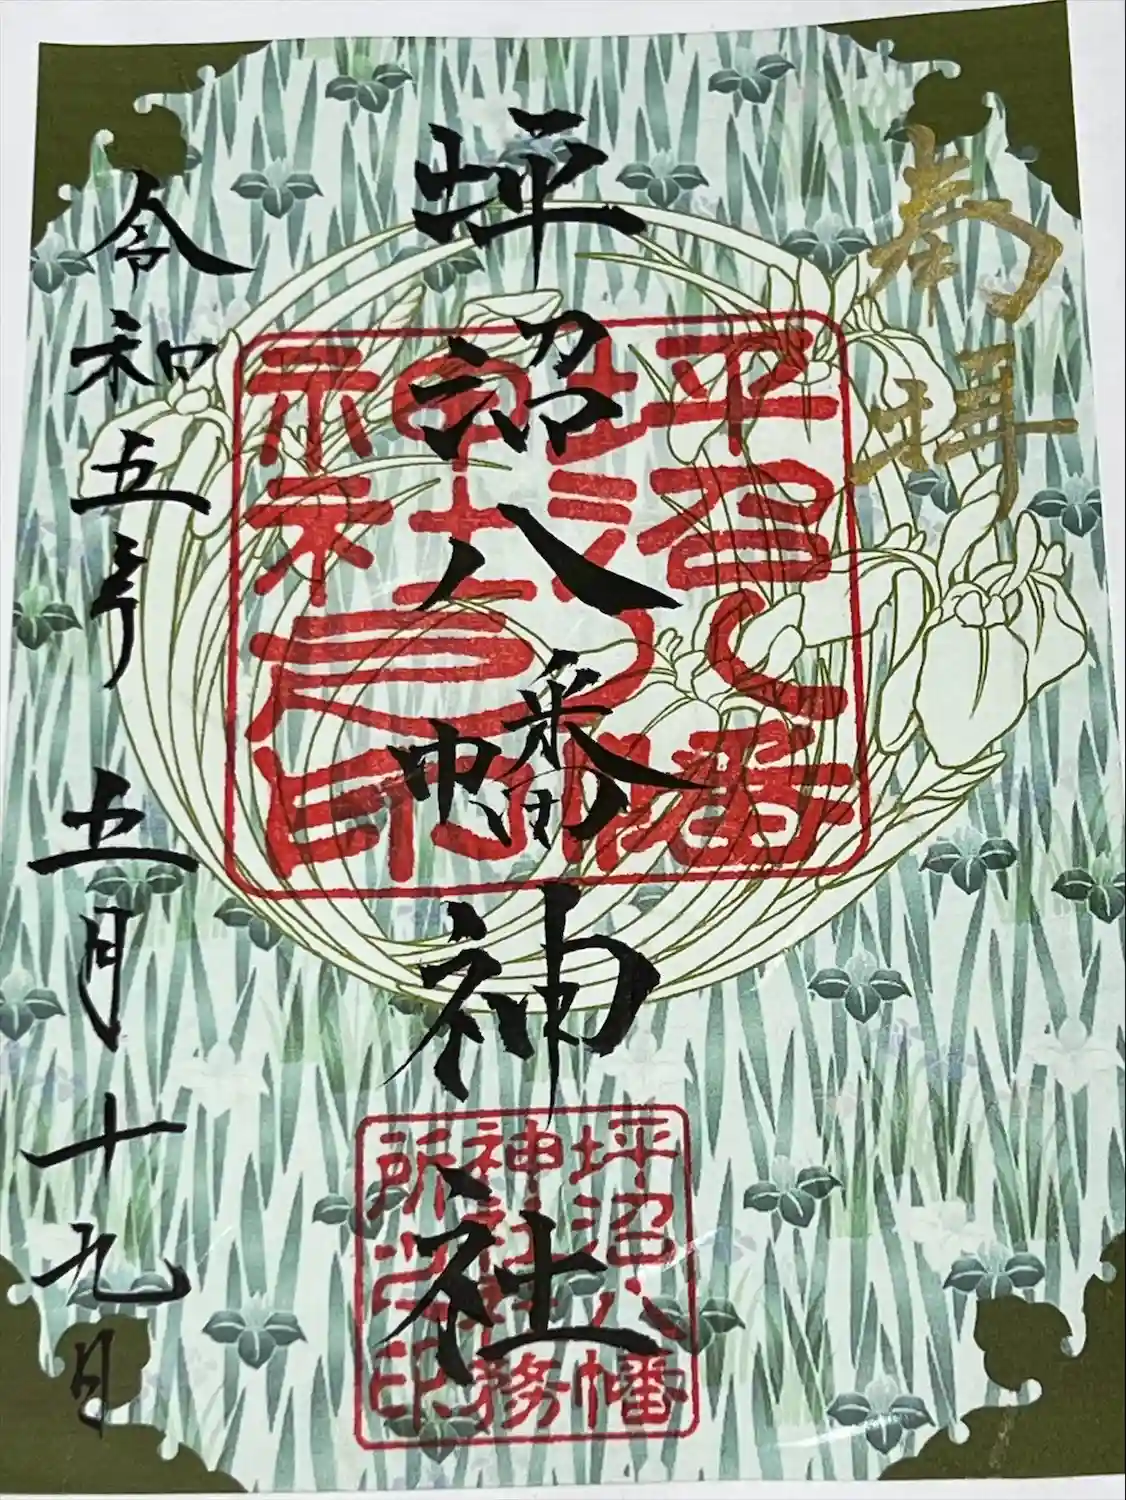 奉拝
坪沼八幡神社
坪沼八幡神社之印
坪沼八幡
神社社務
所之印
令和五年五月十九日